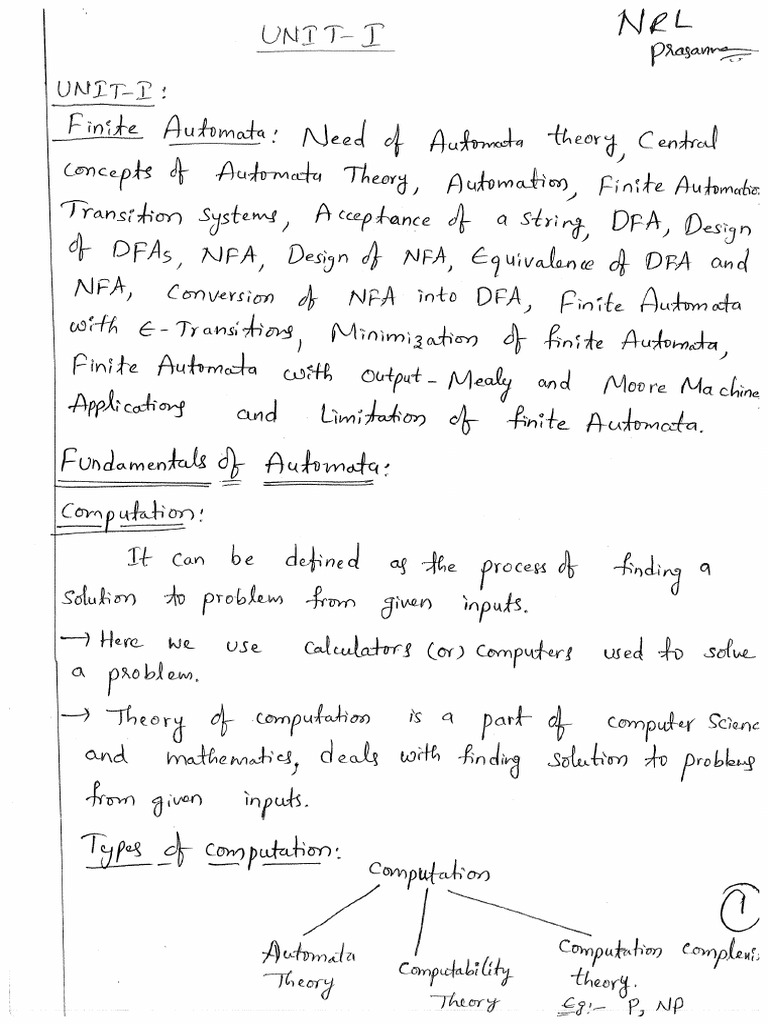 UNIT-I
NRL
Prasanna
UNIT-I:
Finite Automata: Need of Automata theory, Central
concepts of Automata Theory, Automation, Finite Automatio
Transition systems, Acceptance of a string, DFA, Design
of DFAs, NFA, Design of NFA, Equivalence of DFA and
NFA, Conversion of NFA into DFA, Finite Automata
with ∈-Transitions, Minimization of finite Automata,
Finite Automata with output-Mealy and Moore Machine
Applications and Limitation of finite Automata.
Fundamentals of Automata:
Computation:
It can be defined as the process of finding a
solution to problem from given inputs.
→ Here we use calculators (or) computers used to solve
a problem.
→ Theory of computation is a part of computer Scienc
and mathematics, deals with finding solution to problems
from given inputs.
Types of computation:
Computation
Automata Theory
Computability Theory
Computation Complexi
theory.
Eg:- P, NP
1